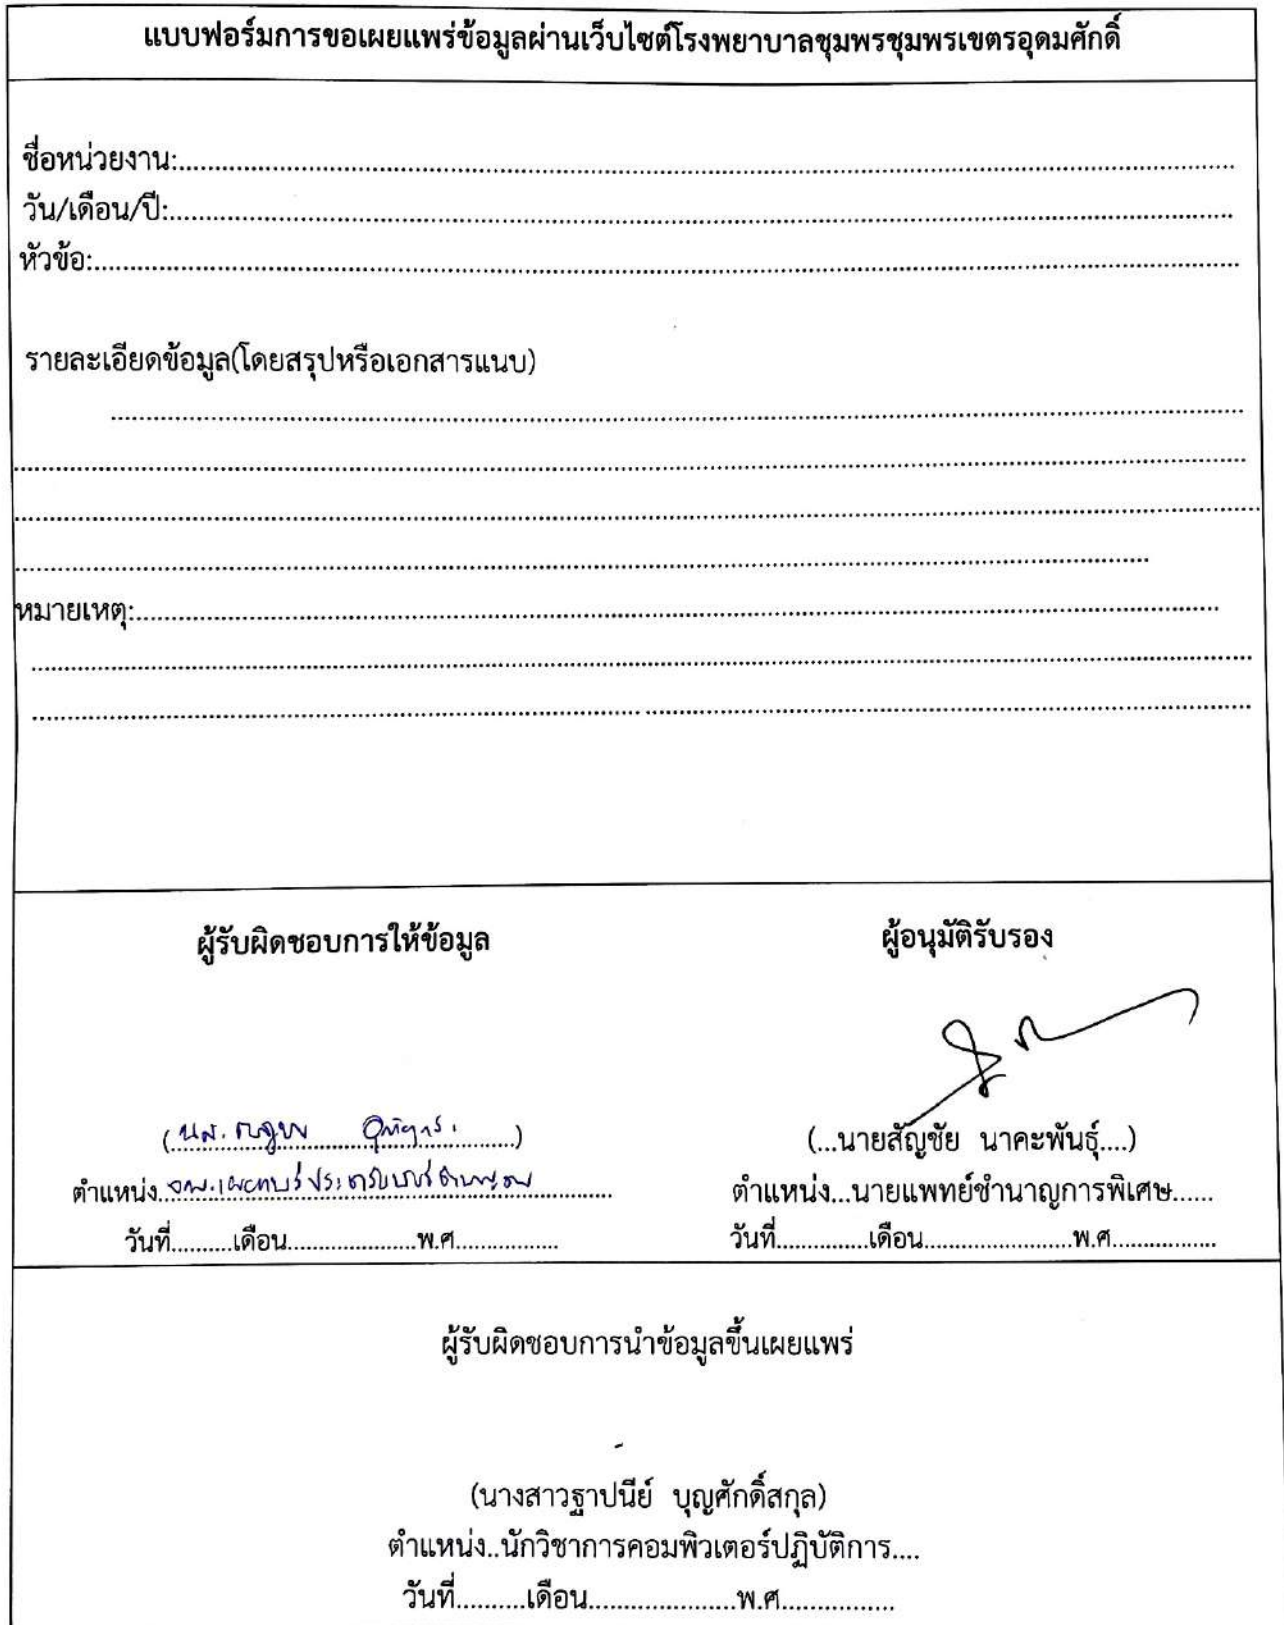 แบบฟอร์มการขอเผยแพร่ข้อมูลผ่านเว็บไซต์โรงพยาบาลชุมพรชุมพรเขตรอุดมศักดิ์
ชื่อหน่วยงาน:
วัน/เดือน/ปี:
หัวข้อ:
รายละเอียดข้อมูล(โดยสรุปหรือเอกสารแนบ)
หมายเหตุ:
ผู้รับผิดชอบการให้ข้อมูล
ผู้อนุมัติรับรอง
(นส. )
(...นายสัญชัย นาคะพันธุ์....)
ตำแหน่ง
ตำแหน่ง...นายแพทย์ชำนาญการพิเศษ......
วันที่..........เดือน......................พ.ศ.................
วันที่...............เดือน.........................พ.ศ.................
ผู้รับผิดชอบการนำข้อมูลขึ้นเผยแพร่
(นางสาวฐาปนีย์ บุญศักดิ์สกุล)
ตำแหน่ง..นักวิชาการคอมพิวเตอร์ปฏิบัติการ....
วันที่..........เดือน......................พ.ศ.................